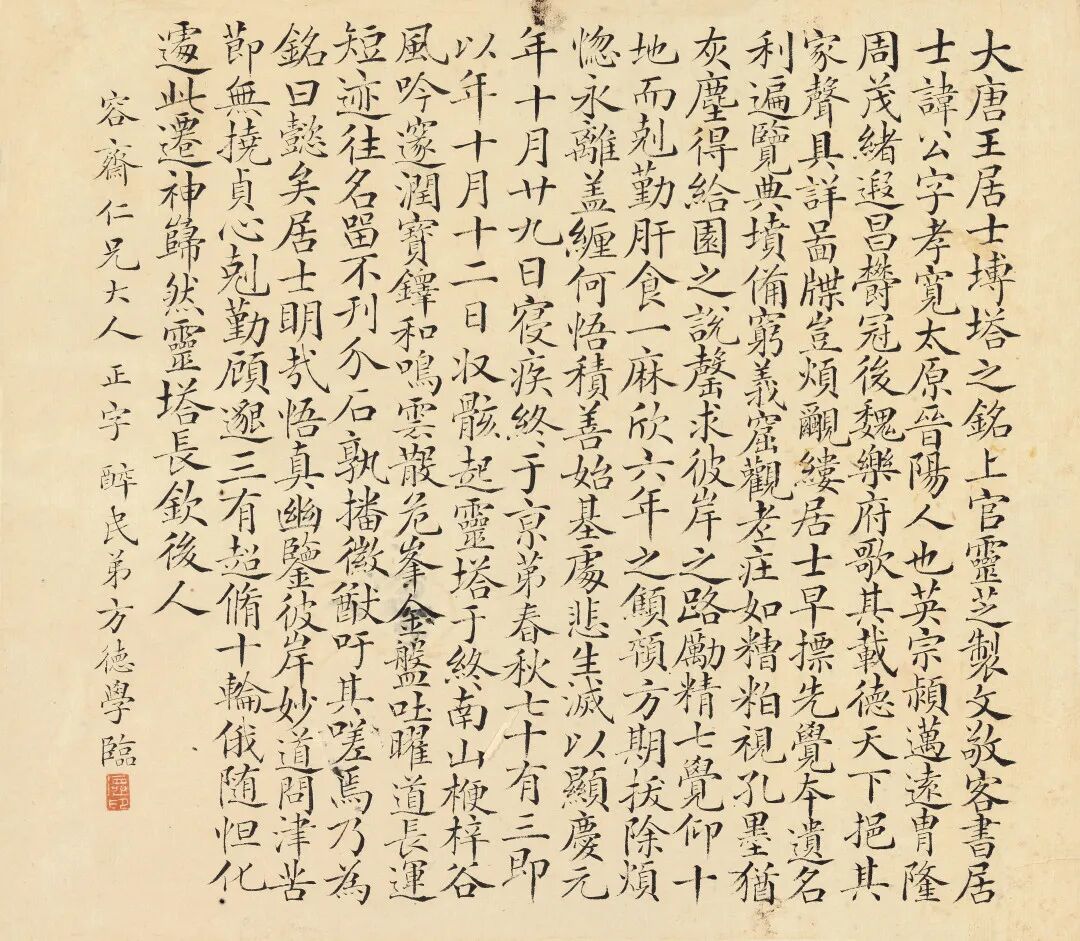 大唐王居士塼塔之銘上官靈芝製文敬客書居
士諱公字孝寬太原晉陽人也英宗頴邁遠冑隆
周茂緒遐昌欝冠後魏樂府歌其載德天下挹其
家聲具詳啚牒豈煩覼縷居士早摽先覺本遺名
利遍覽典墳備窮義窟觀老庄如糟粕視孔墨猶
灰塵得給園之說罄求彼岸之路勵精七覺仰十
地而剋勤肝食一麻欣六年之顦顇方期拔除煩
惚永離盖纏何悟積善始基處悲生滅以顯慶元
年十月廿九日寑疾終于京第春秋七十有三即
以年十月十二日収骸起靈塔于終南山梗梓谷
風吟邃潤寶鐸和鳴雲散危峯金盤吐曜道長運
短迹往名留不刊介石孰播徽猷吁其嗟焉乃為
銘曰懿矣居士眀哉悟真幽鑒彼岸妙道問津苦
節無撓貞心剋勤顧邈三有超脩十輪俄随怛化
遽此遷神歸然靈塔長欽後人
容齋仁兄大人正字 醉民弟方德學臨